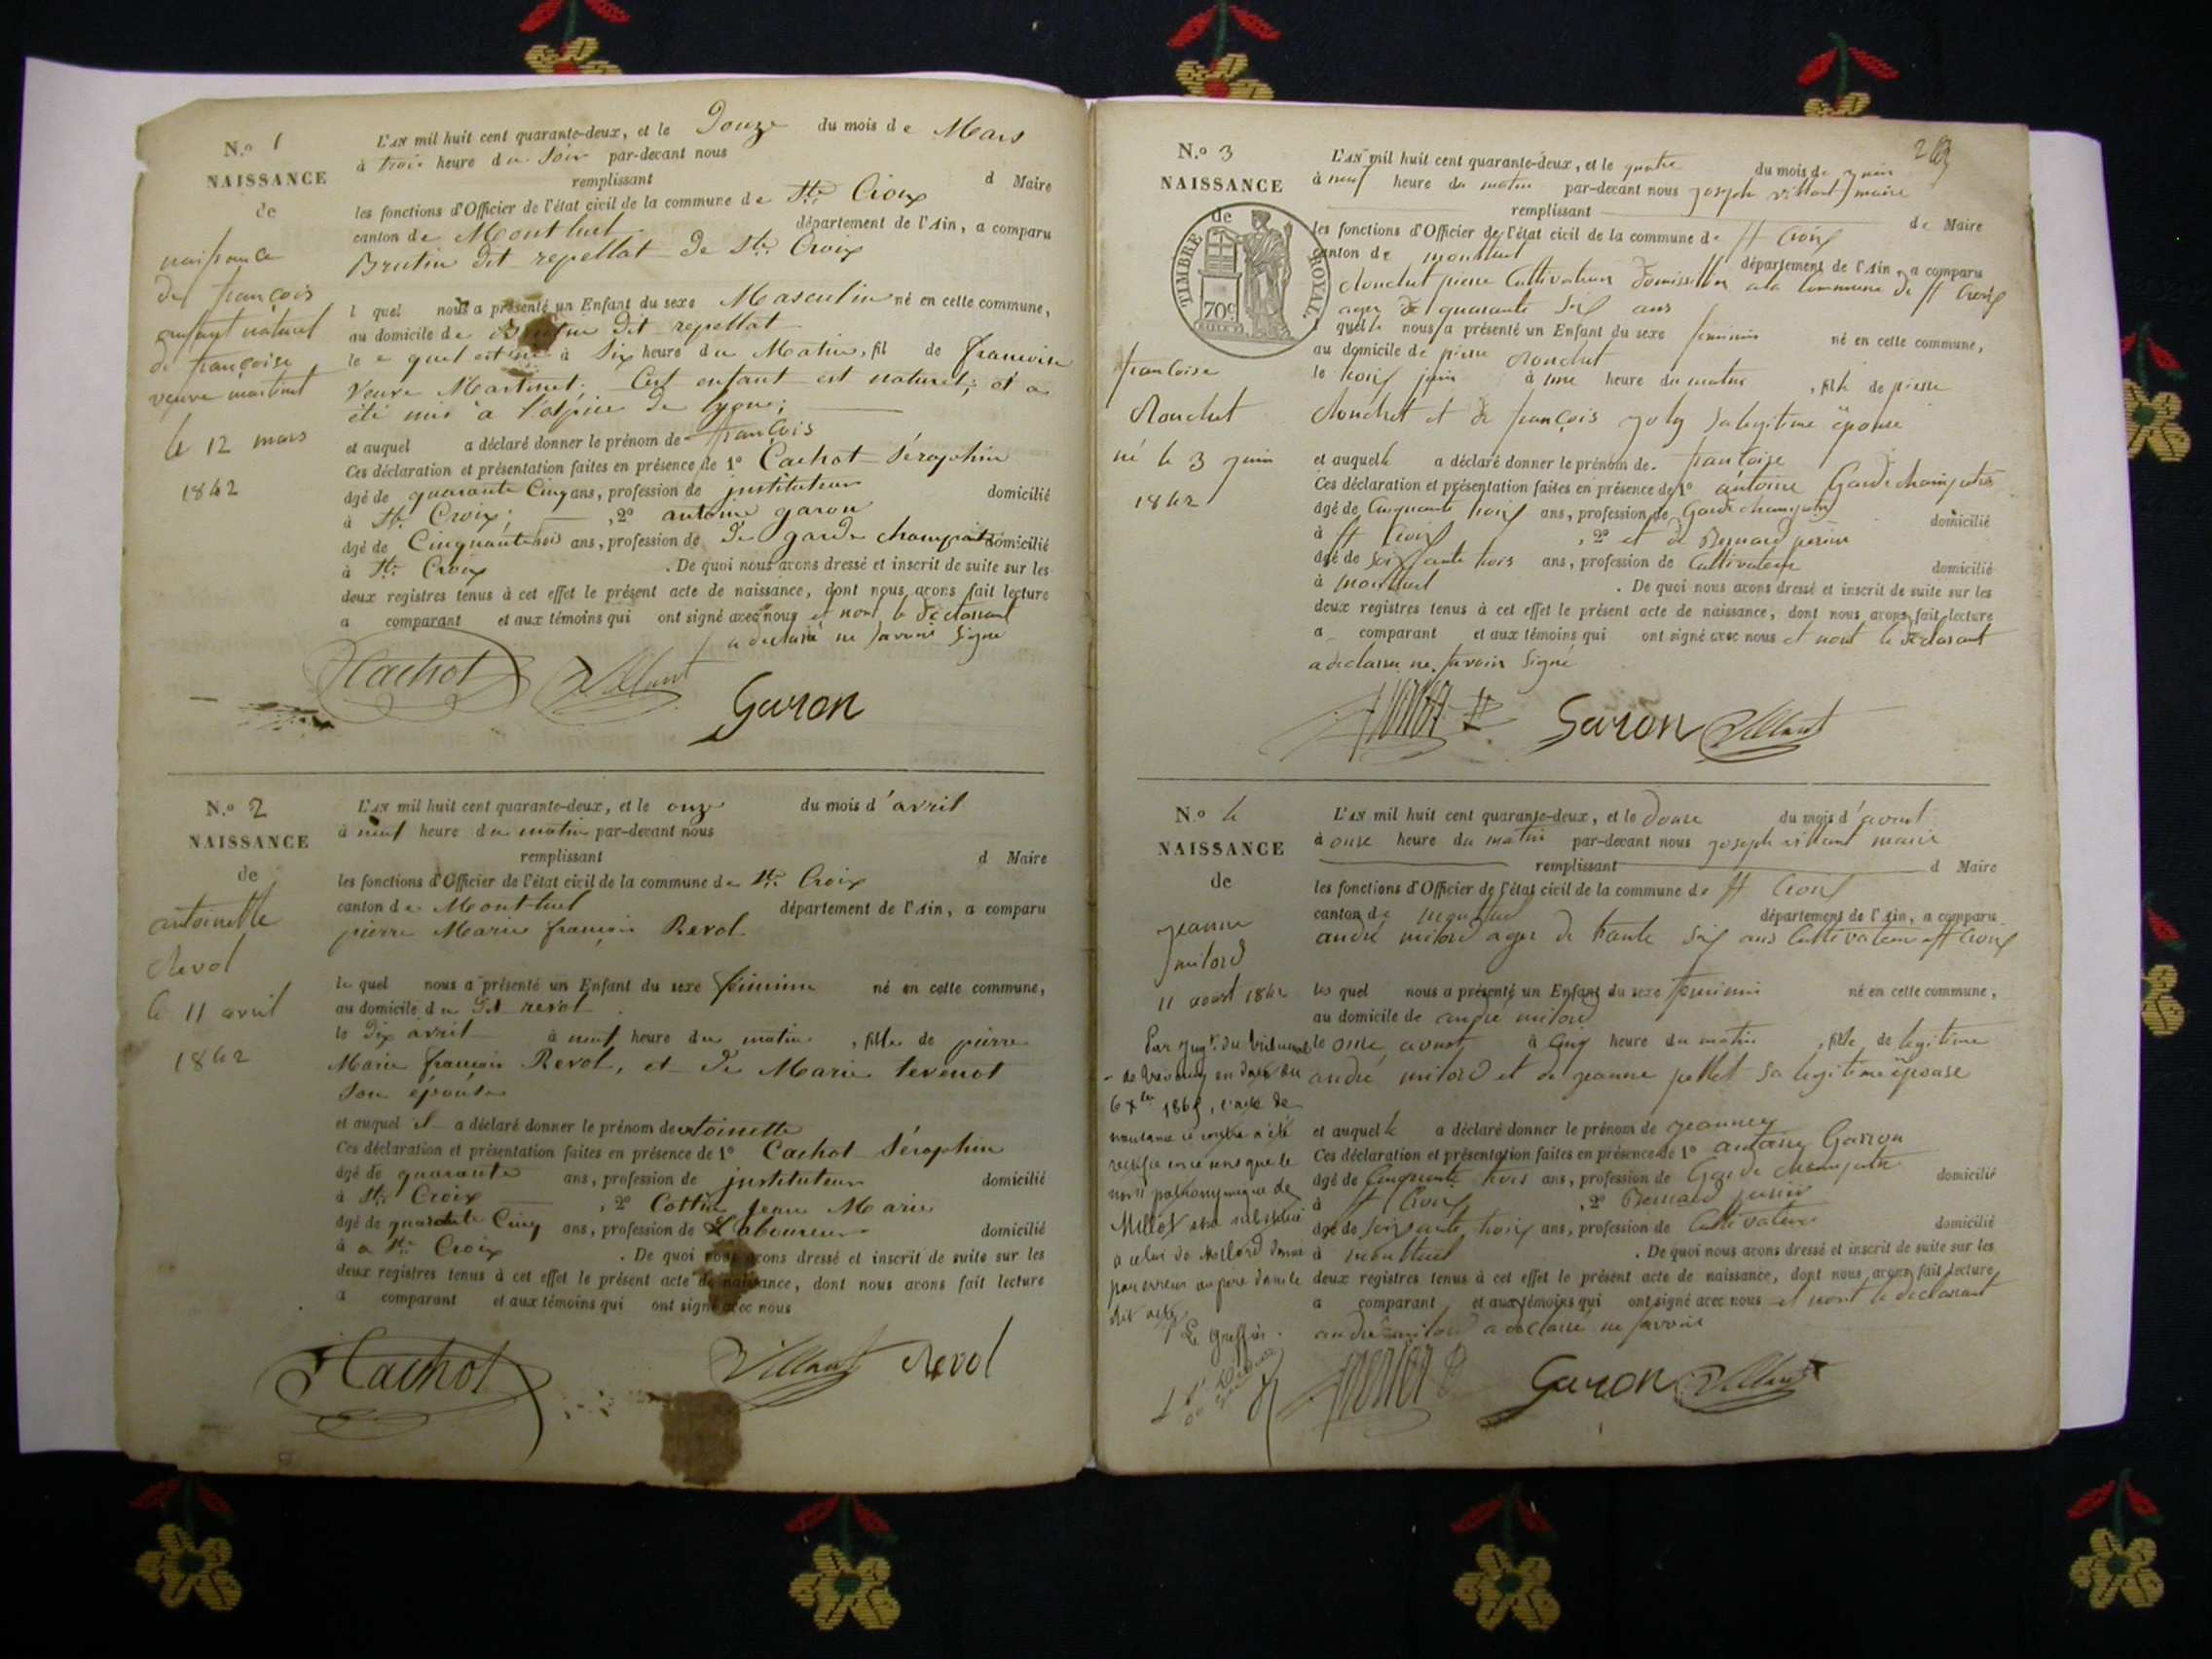 N.o 1
NAISSANCE
de
naissance
de françois
enfant naturel
de françoise
veuve martinet
le 12 mars
1842
L'AN mil huit cent quarante-deux, et le Douze du mois de Mars
à trois heure du Soir par-devant nous
remplissant d Maire
les fonctions d'Officier de l'état civil de la commune de Ste Croix
canton de Montluel département de l'Ain, a comparu
Brutin dit repellat de Ste Croix
l quel nous a présenté un Enfant du sexe Masculin né en cette commune,
au domicile de Brutin dit repellat
le quel est né à Six heure du Matin, fil de francoise
Veuve Martinet; Cest enfant est naturel; et a
été mis à l'ospice de Lyon;
et auquel a déclaré donner le prénom de françois
Ces déclaration et présentation faites en présence de 1o Cachot Séraphin
âgé de quarante Cinq ans, profession de justituteur domicilié
à Ste Croix; , 2o antoine garon
âgé de Cinquante trois ans, profession de De garde champêtre domicilié
à Ste Croix . De quoi nous avons dressé et inscrit de suite sur les
deux registres tenus à cet effet le présent acte de naissance, dont nous avons fait lecture
a comparant et aux témoins qui ont signé avec nous et nont le déclarant
a déclaré ne savoir Signé
Cachot Villant Garon
N.o 2
NAISSANCE
de
antoinette
Revol
le 11 avril
1842
L'AN mil huit cent quarante-deux, et le onze du mois d'avril
à neuf heure du matin par-devant nous
remplissant d Maire
les fonctions d'Officier de l'état civil de la commune de Ste Croix
canton de Mont-luel département de l'Ain, a comparu
pierre Marie françois Revol
le quel nous a présenté un Enfant du sexe féminin né en cette commune,
au domicile du dit revol
le Dix avril à neuf heure du matin, fille de pierre
Marie françois Revol, et de Marie tevenot
Son épouse
et auquel il a déclaré donner le prénom de antoinette
Ces déclaration et présentation faites en présence de 1o Cachot Séraphin
âgé de quarante ans, profession de justituteur domicilié
à Ste Croix , 2o Cottin Jean Marie
âgé de quarante Cinq ans, profession de Laboureur domicilié
à a Ste Croix . De quoi nous avons dressé et inscrit de suite sur les
deux registres tenus à cet effet le présent acte de naissance, dont nous avons fait lecture
a comparant et aux témoins qui ont signé avec nous
Cachot Villant Revol
N.o 3
NAISSANCE
de
TIMBRE ROYAL
70c
francoise
Ronchet
né le 3 juin
1842
L'AN mil huit cent quarante-deux, et le quatre du mois de juin
à neuf heure du matin par-devant nous joseph villant maire
remplissant de Maire
les fonctions d'Officier de l'état civil de la commune de St Croix
canton de montluel département de l'Ain, a comparu
Ronchet pierre Cultivateur Domicillier a la commune de St Croix
ager de quarante Six ans
quel nous a présenté un Enfant du sexe feminin né en cette commune,
au domicile de pierre Ronchet
le trois juin à une heure du matin, fille de pierre
Ronchet et de françois joly Sa legitime épouse
et auquel a déclaré donner le prénom de francoise
Ces déclaration et présentation faites en présence de 1o antoine Garde champetre
âgé de Cinquante trois ans, profession de Garde champetre domicilié
à St Croix , 2o et de Bernard perrier
âgé de Soixante trois ans, profession de Cultivateur domicilié
à montluel . De quoi nous avons dressé et inscrit de suite sur les
deux registres tenus à cet effet le présent acte de naissance, dont nous avons fait lecture
a comparant et aux témoins qui ont signé avec nous et nont le déclarant
a declarer ne savoir Signé
Garon Villant
N.o 4
NAISSANCE
de
jeanne
milord
11 aoust 1842
Par jugt du tribunal
de Trévoux en date du
6 Xbre 1865, l'acte de
naissance ci contre a été
rectifié en ce sens que le
nom patronymique de
Millot sera substitué
à celui de Milord donné
par erreur au père dans le
dit acte
Le Greffier.
L'AN mil huit cent quarante-deux, et le Douse du mois d'aoust
à onse heure du matin par-devant nous joseph villant maire
remplissant d Maire
les fonctions d'Officier de l'état civil de la commune de St Croix
canton de montluel département de l'Ain, a comparu
andré milord ager de trante Six ans Cultivateur a St Croix
les quel nous a présenté un Enfant du sexe feminin né en cette commune,
au domicile de andré milord
le onse aoust à Cinq heure du matin, fille de legitime
andré milord et de jeanne pellet Sa legitime épouse
et auquel a déclaré donner le prénom de jeanne
Ces déclaration et présentation faites en présence de 1o antoine Garron
âgé de Cinquante trois ans, profession de Garde champetre domicilié
à St Croix , 2o Bernard perrier
âgé de Soixante trois ans, profession de Cultivateur domicilié
à montluel . De quoi nous avons dressé et inscrit de suite sur les
deux registres tenus à cet effet le présent acte de naissance, dont nous avons fait lecture
a comparant et aux témoins qui ont signé avec nous et nont le declarant
andré milord a déclaré ne savoir
perrier Garon Villant